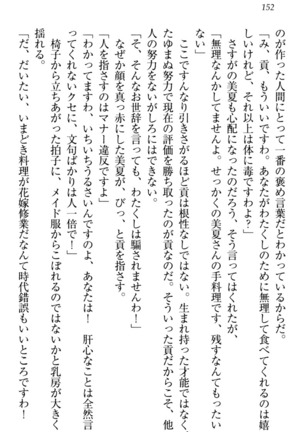 152
のが作った人にとって一番の褒め言葉だとわかっているからだ。
「み、貢、もういいですわ。あなたがわたくしのために無理して食べてくれるのは嬉
しいけれど、それ以上は体に毒ですわよ?」
さすがの美夏も心配になったのだろう、そう言ってはくれたが、
「無理なんかしてませんよ。せっかくの美夏さんの手料理です、残すなんてもったい
ない」
ここですんなり引きさがるほど貢は根性なしではない。生まれ持った才能ではなく、
たゆまぬ努力で現在の評価を勝ち取ったのが貢なのだ。そういった貢だからこそ、他
人の努力をないがしろにはできない。
「そ、そんなお世辞を言っても、わたくしは騙されませんわ!」
なぜか顔を真っ赤にした美夏が、びっ、と貢を指さす。
「人を指さすのはマナー違反ですよ」
「わかってますわ、いちいちうるさいんですのよ、あなたは! 肝心なことは全然言
ってくれないクセに、文句ばかりは人一倍で!」
椅子から立ちあがった拍子に、メイド服からこぼれるのではないかと乳房が大きく
揺れる。
「だ、だいたい、いまどき料理が花嫁修業だなんて時代錯誤もいいところですわ!